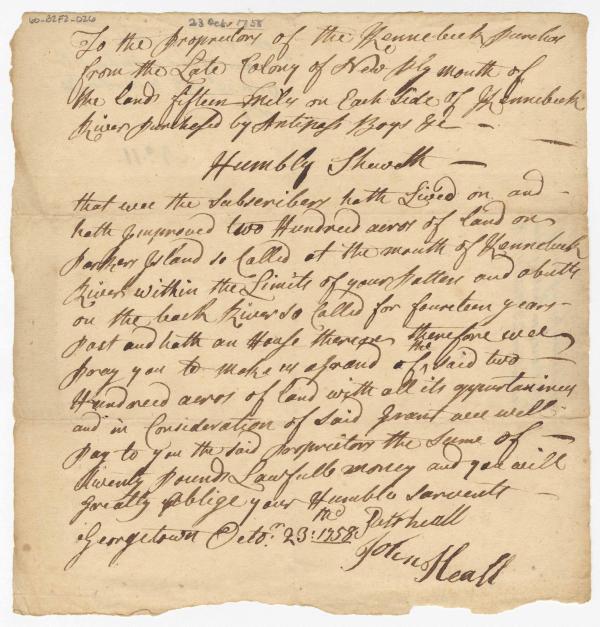 60-B2F2-026
23 Octr 1758
To the Propriators of the Kennebeck Purchas
from the Late Colony of New Plymouth of
the lands fifteen Miles on Each Side of Kennebeck
River purchased by Antipass Boys &c —
Humbly Sheweth —
that wee the Subscribers hath Lived on and
hath Improved two Hundreed acros of land on
Parkers Island so Called at the mouth of Kennebeck
River within the Limits of your Patten and abutts
on the back River so Called for fourteen years
Past and hath an House thereon therefore wee
pray you to make us a grand of the said two
Hundreed acros of land with all its appurtainces
and in Consideration of said grant wee will
Pay to you the said Propriators the Sume of —
twenty pounds Lawfull money and you will
greatly oblige your Humble Sarvents —
Georgetown Octor. 23: 1758
John Heall